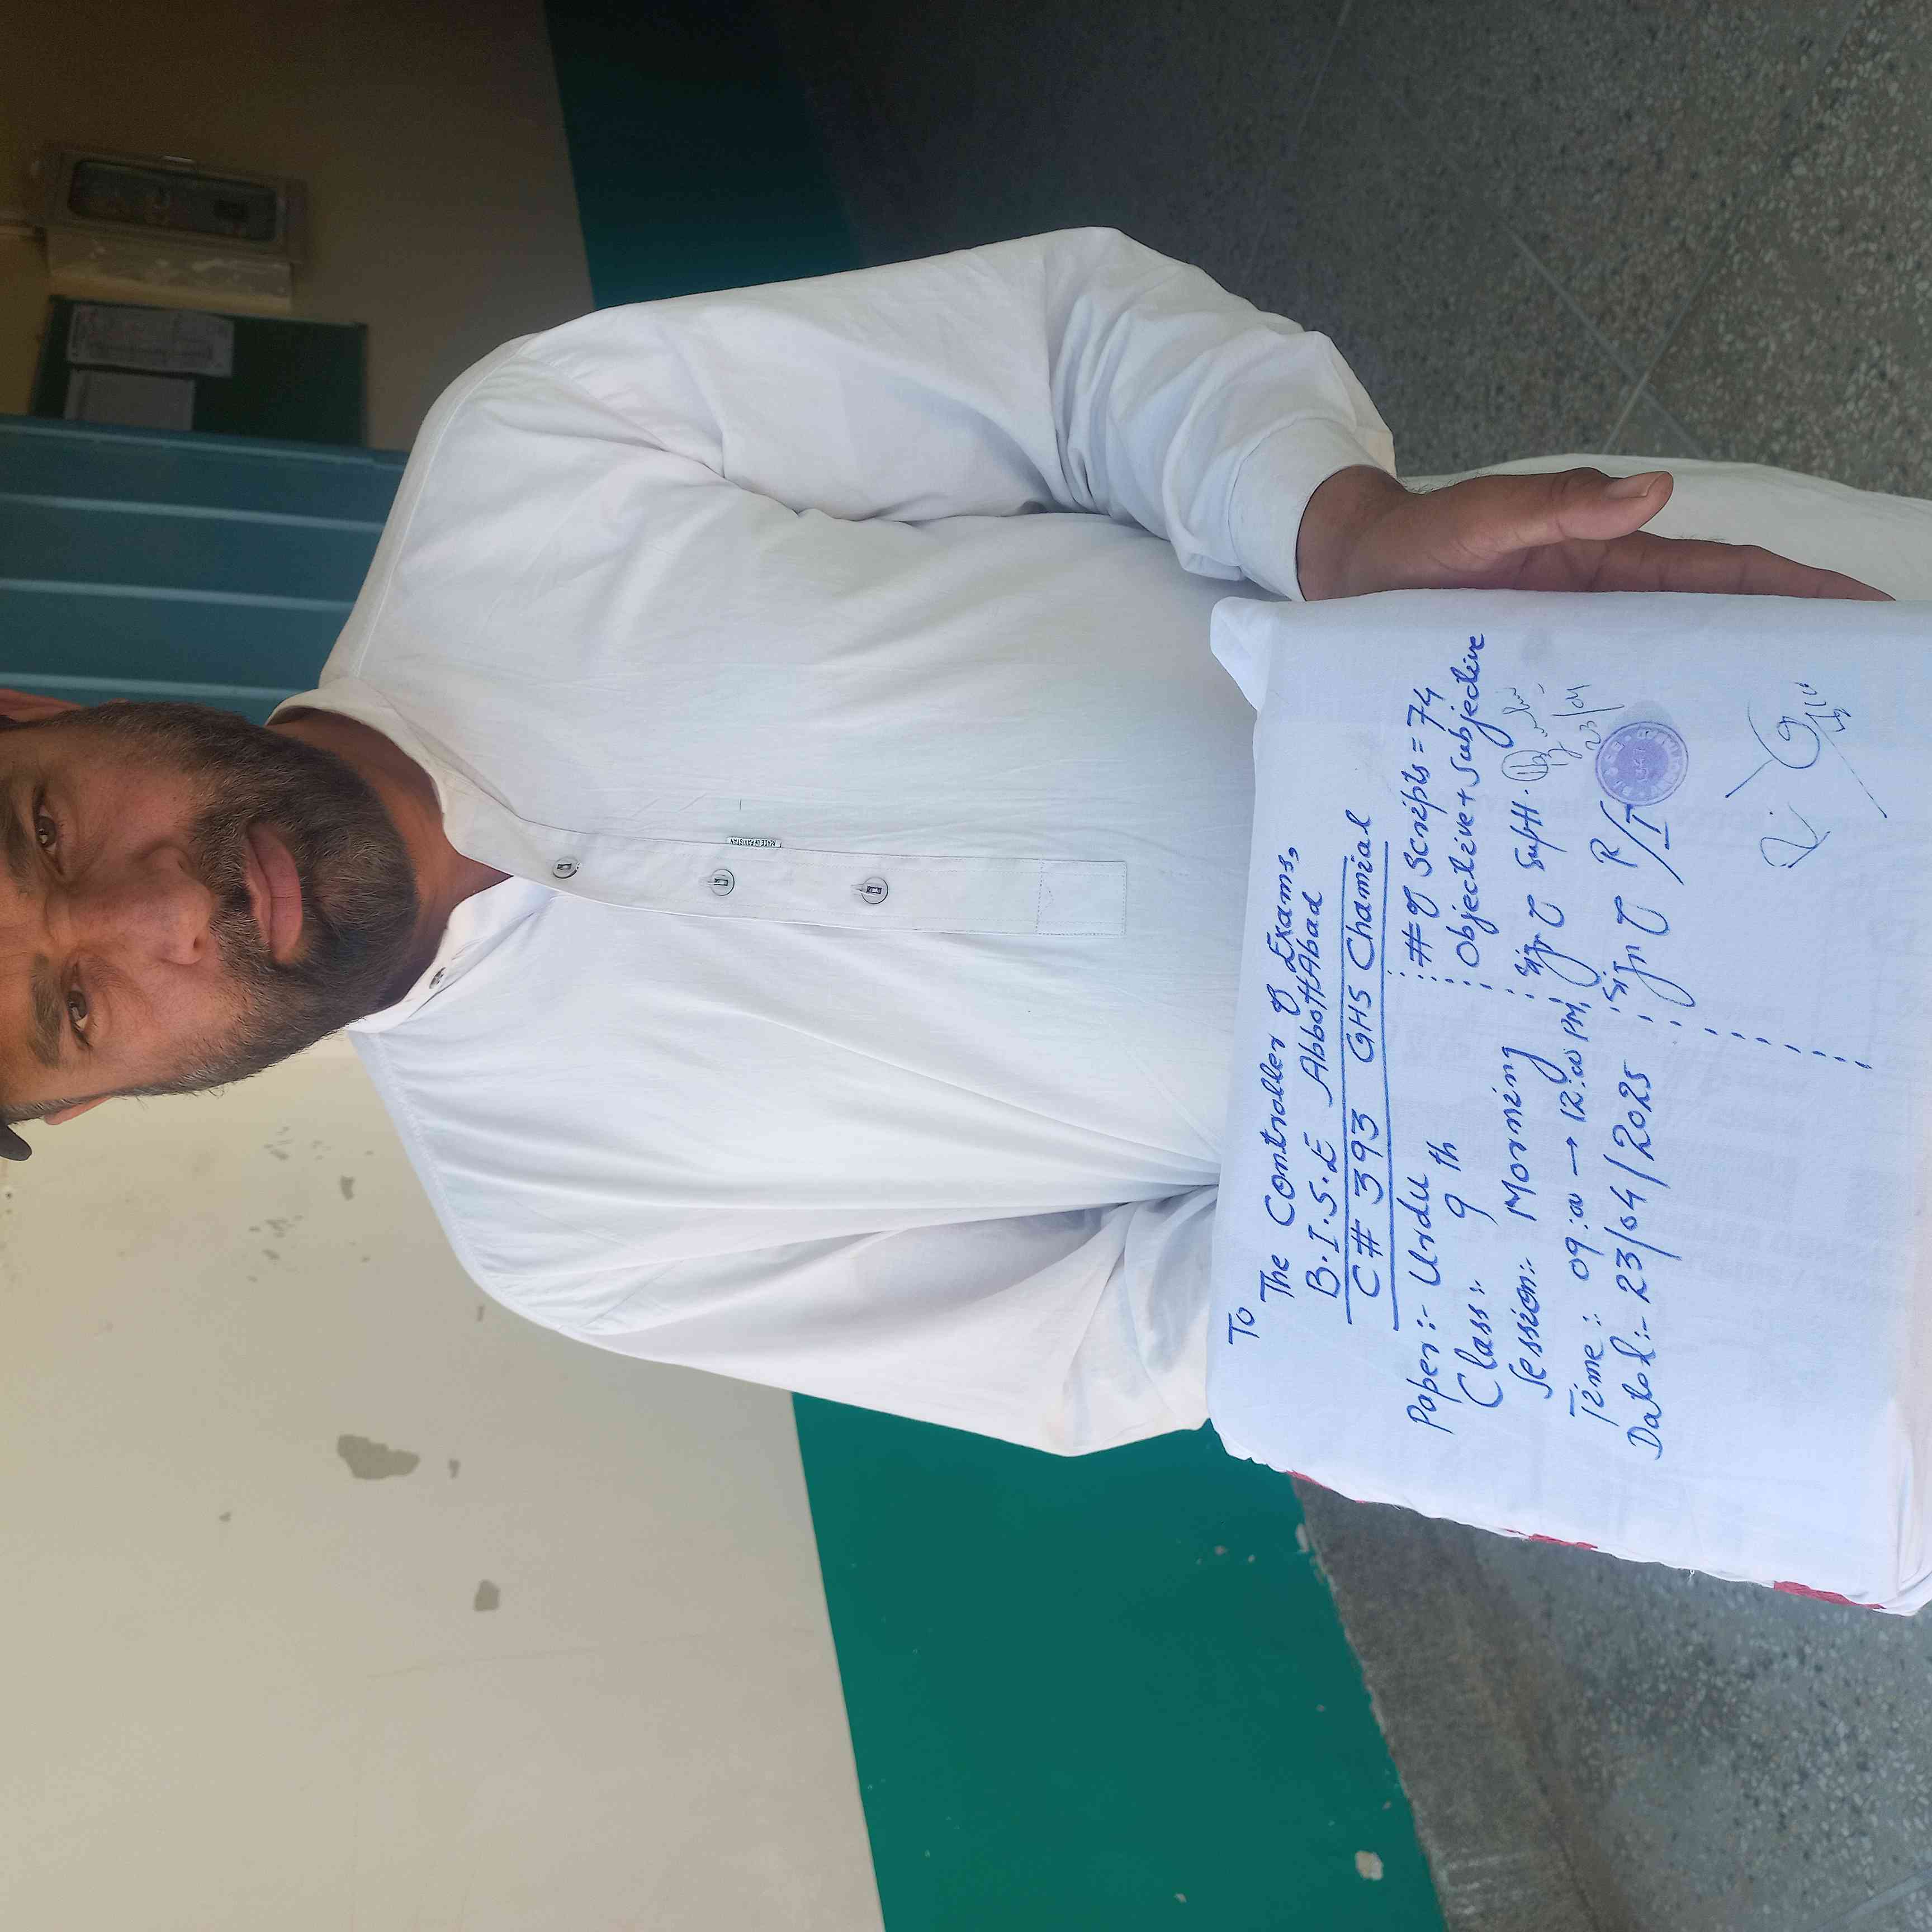 To
The Controller of Exams,
B.I.S.E AbbottAbad
C # 393 GHS Chamial
Paper:- Urdu
Class:- 9th
Session:- Morning
Time:- 09:00 → 12:00 PM
Dated:- 23/04/2025
# of Scripts = 74
Objective + Subjective
Sign of Suptt.
23/04
Sign of R/I
MADE IN PAKISTAN